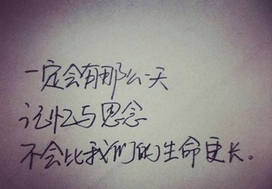 一定会有那么一天
记忆与思念
不会比我们的生命更长。